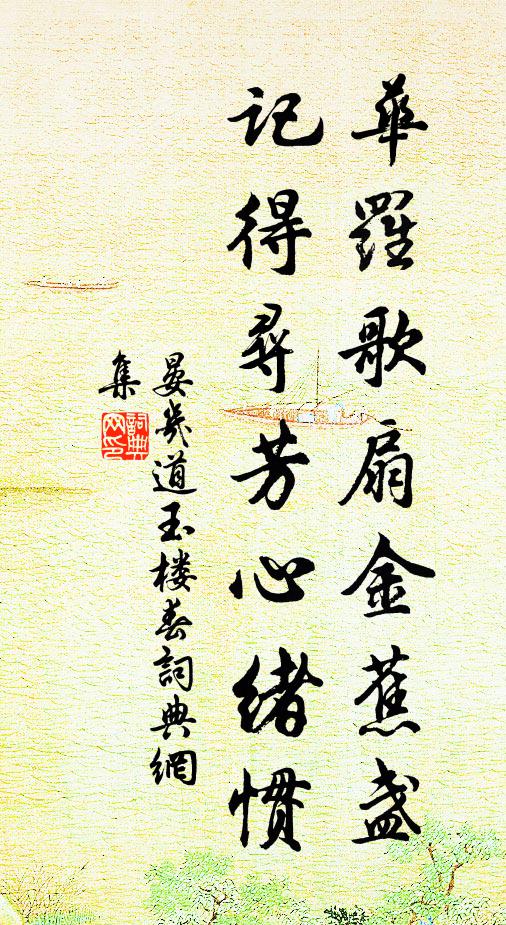 華羅歌扇金蕉盞
記得尋芳心緒慣
晏幾道玉樓春詞典網
集
詞典
网印